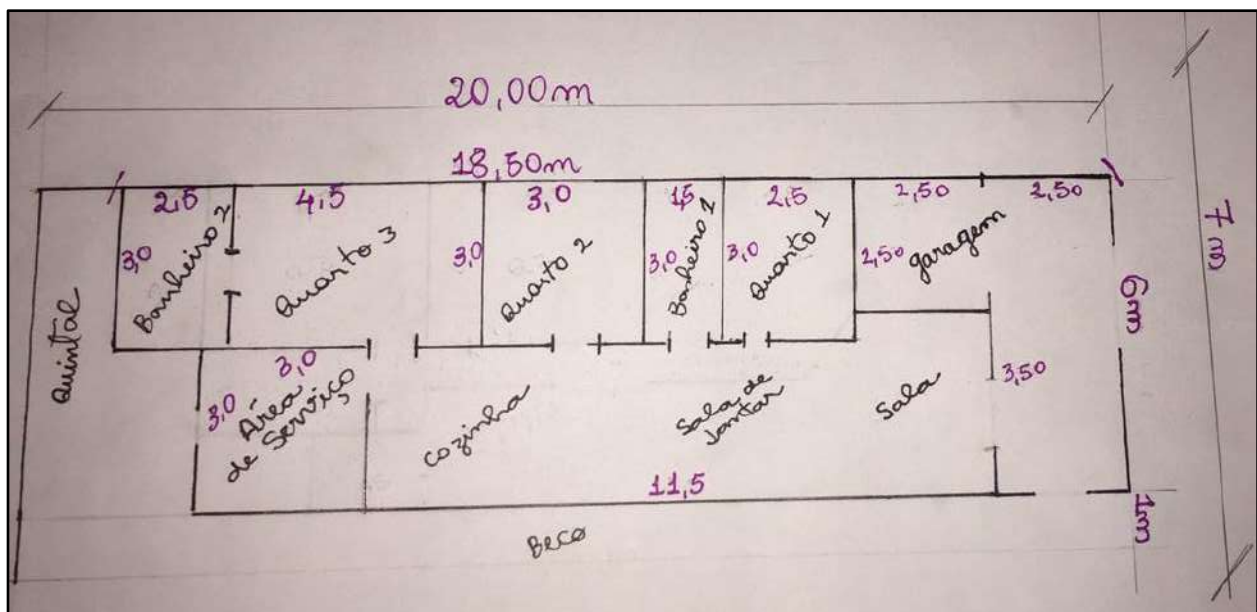 20,00m
18,50m
2,5
4,5
3,0
1,5
2,5
2,50
2,50
7m
3,0
Banheiro 2
Quarto 3
3,0
Quarto 2
3,0
Banheiro 1
3,0
Quarto 1
2,50
garagem
6m
Quintal
3,0
3,0
Área
de Serviço
cozinha
Sala de
Jantar
Sala
3,50
11,5
1m
Beco